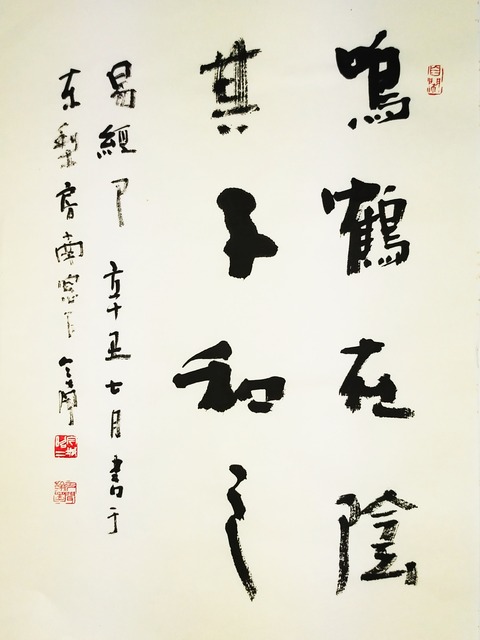 鳴鶴在陰
其子和之
易經句 辛丑七月書于
东梨房南窓下